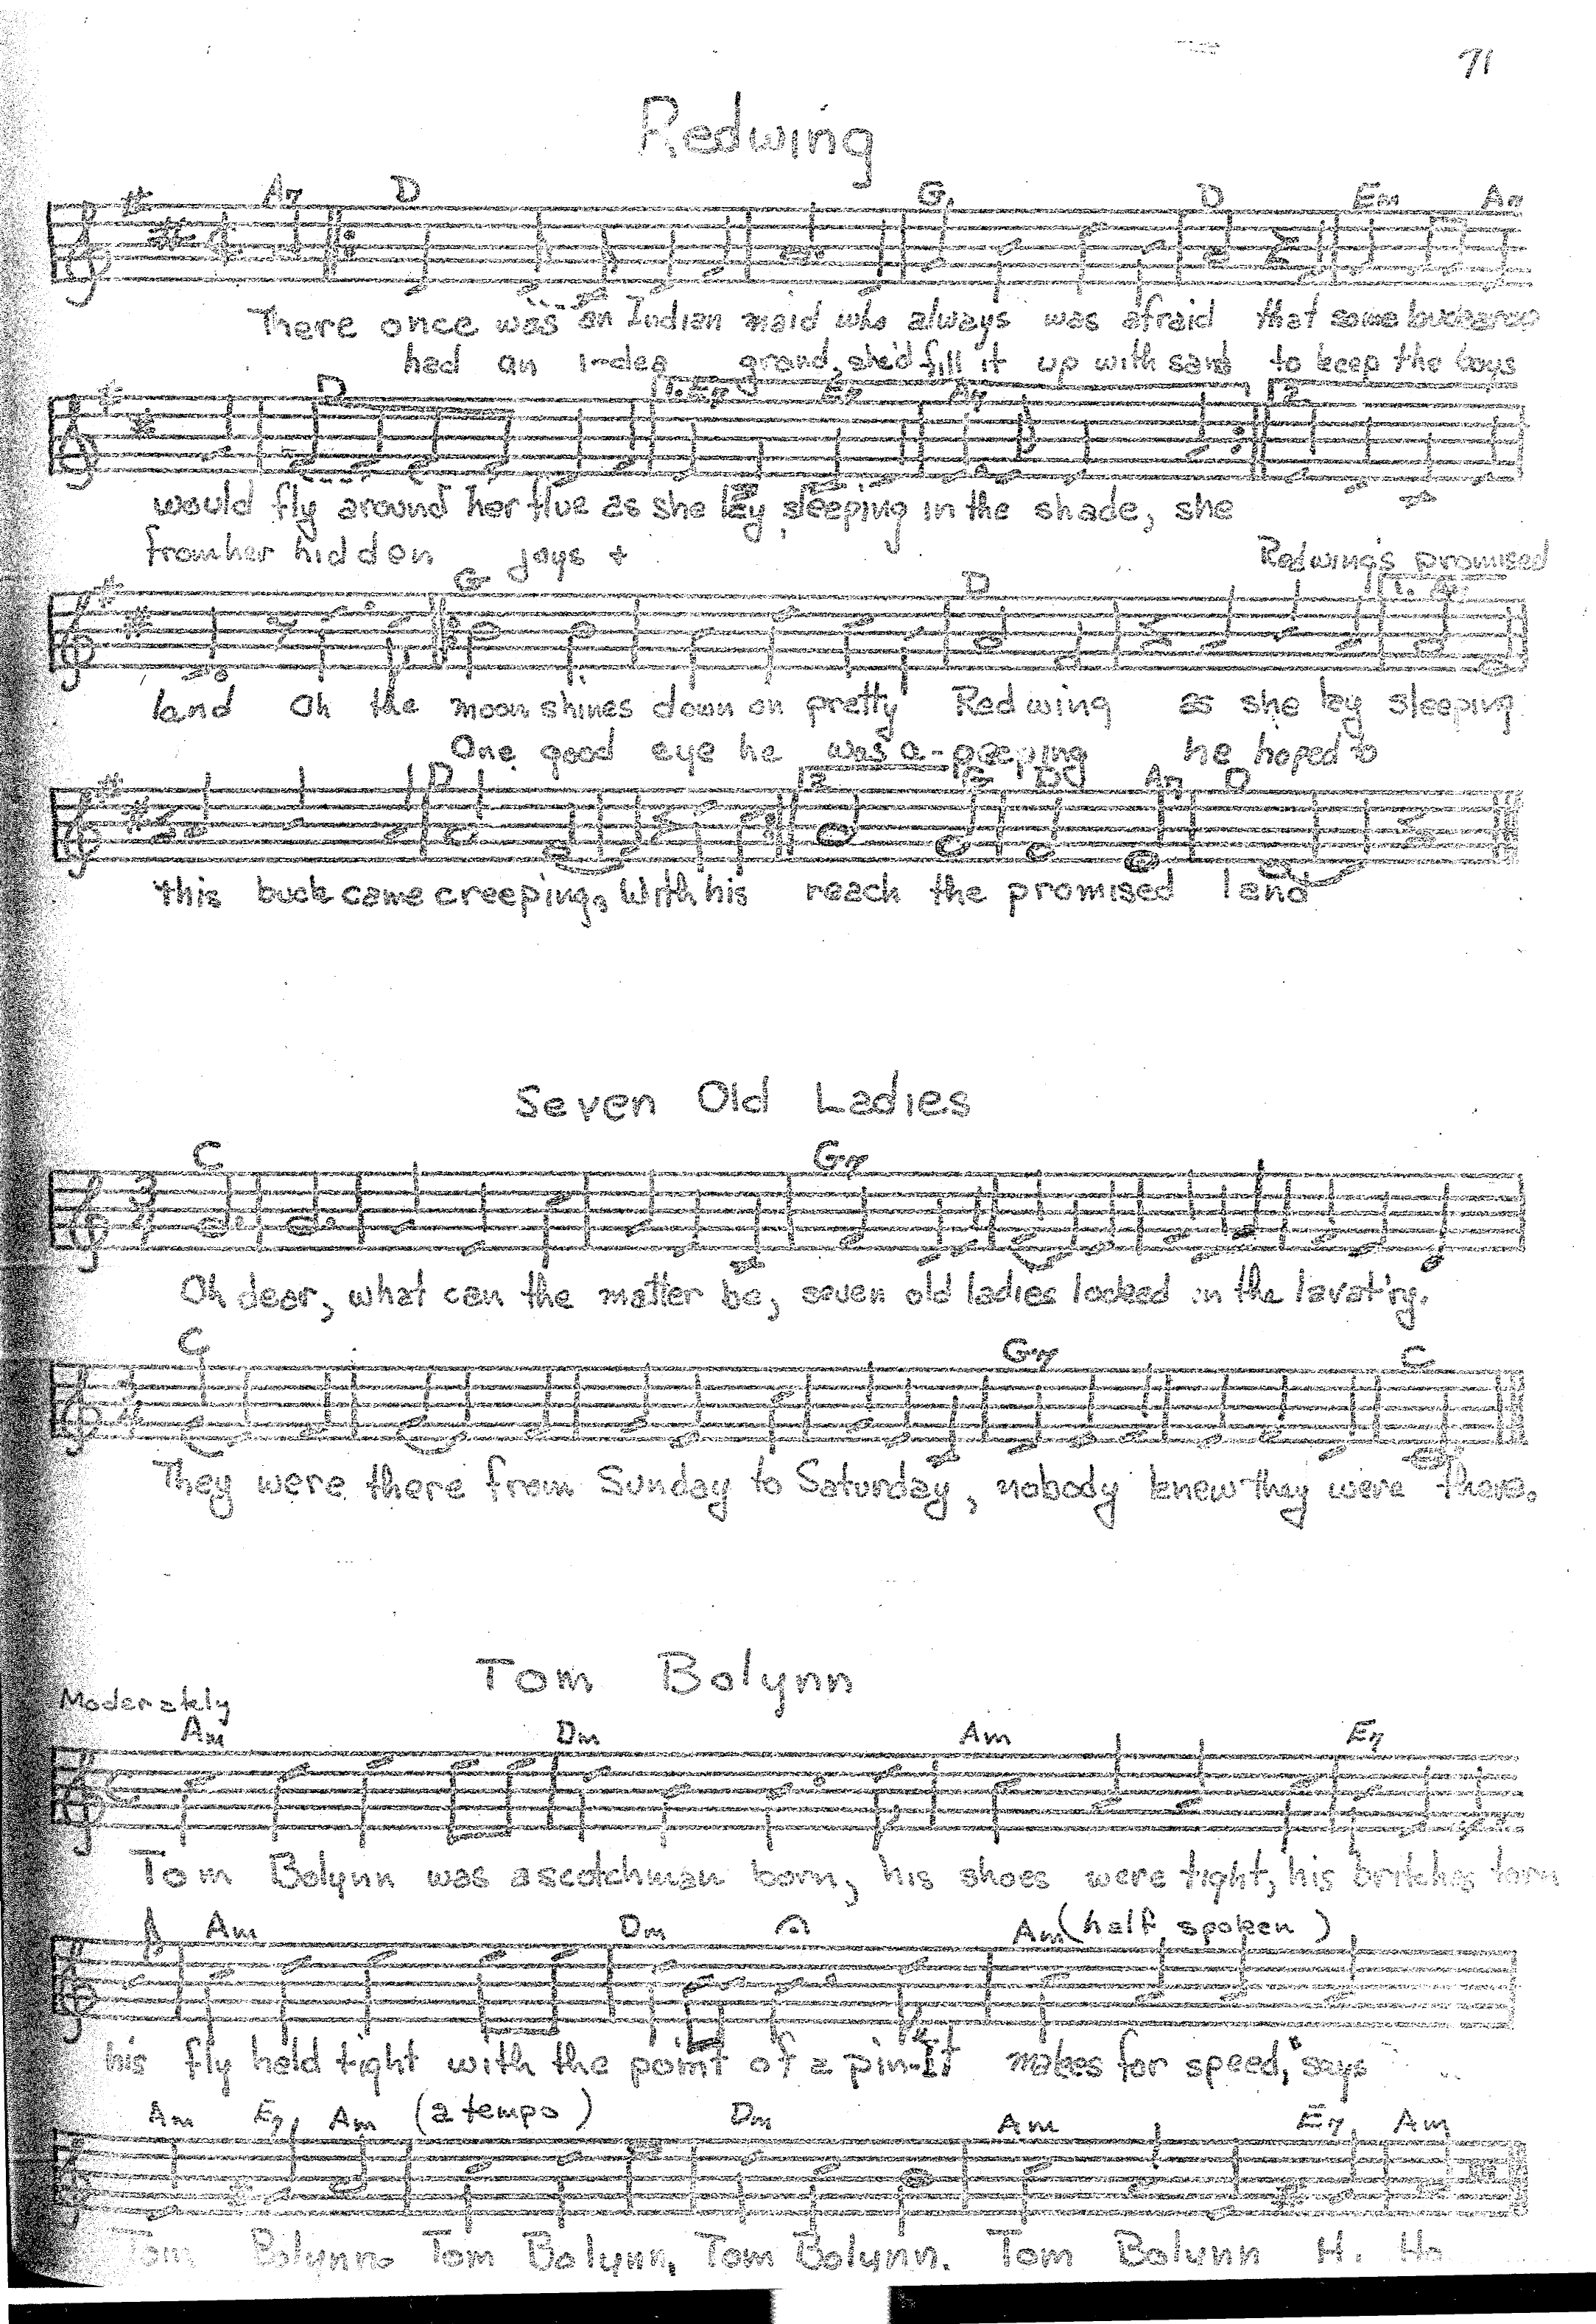 71
Redwing
A7 D G D Em A7
There once was an Indian maid who always was afraid that some buccaroo
had an i-dea grand, she'd fill it up with sand to keep the boys
D 1. E7 E7 A7 2.
would fly around her flue as she lay sleeping in the shade, she
from her hidden joys + Redwing's promised
G D 1.
land Oh the moon shines down on pretty Redwing as she lay sleeping
One good eye he was a-peeping he hoped to
D 2. D A7 D
this buck came creeping, With his reach the promised land
Seven Old Ladies
C G7
Oh dear, what can the matter be, seven old ladies locked in the lavat'ry.
C G7 C
They were there from Sunday to Saturday, nobody knew they were there.
Tom Bolynn
Moderately
Am Dm Am E7
Tom Bolynn was a scotchman born, his shoes were tight, his britches torn
Am Dm Am (half spoken)
his fly held tight with the point of a pin-"It makes for speed," says
Am E7 Am (a tempo) Dm Am E7 Am
Tom Bolynn. Tom Bolynn, Tom Bolynn. Tom Bolynn H. Ho